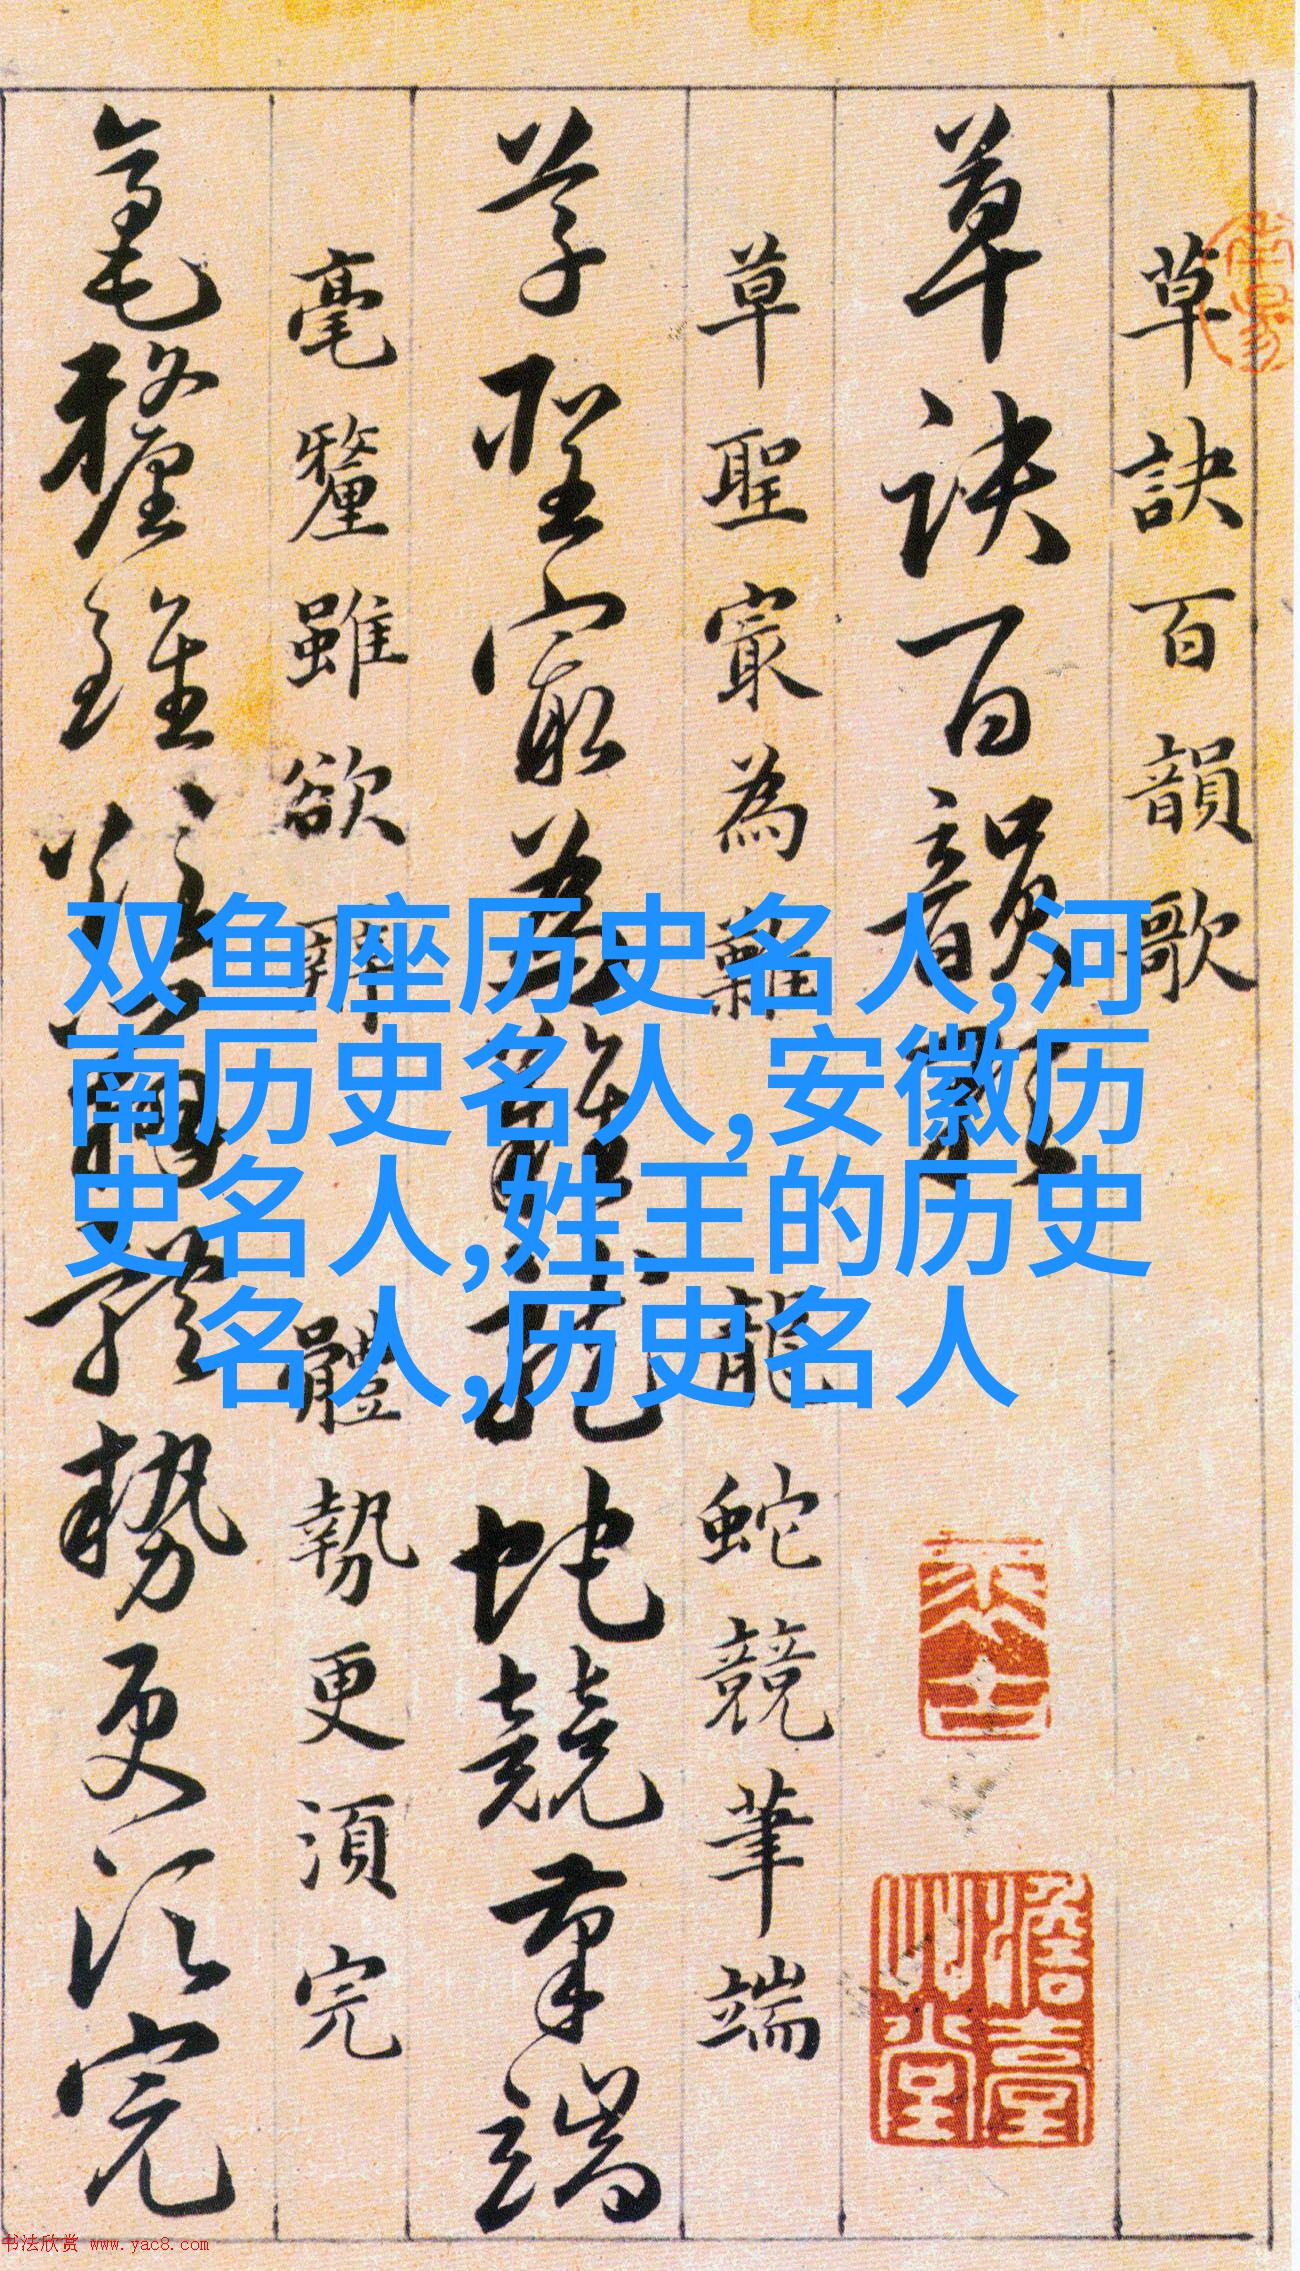 草訣百韻歌
草訣百韻歌
草聖㝡為難 龍蛇競筆端
草聖㝡為難 龍蛇競筆端
毫釐雖欲辨 體勢更須完
毫釐雖欲辨 體勢更須完
双鱼座历史名人,河
南历史名人,安徽历
史名人,姓王的历史
名人,历史名人
书法欣赏 www.yac8.com